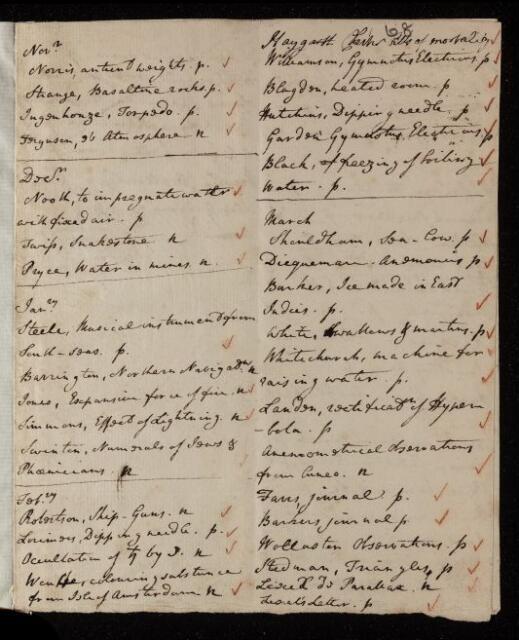 Nov.r
Norris, antient weights. p.
Strange, Basaltine rocks. p.
Ingenhouze, Torpedo. p.
Ferguson, Atmosphere n
Dec.r
Nooth, to impregnate water
with fixed air. p
Swift, Snakestone n
Pryce, Water in mines. n.
Jan.ry
Steele, Musical instruments from
South-seas. p.
Barrington, Northern Navigat.n n
Jones, Expansive force of fire. n
Simmons, Effect of Lightning. n
Swinton, Numerals of Jews &
Phœnicians. n
Feb.ry
Robertson, Ship-Guns. n
Lorimer, Dipping needle. p.
Occultation of ♄ by ☽. n
colouring substance
from Isle of Amsterdam n
68
Haygarth Bills of mortality
Williamson, Gymnotus Electricus. p
Blagden, heated room. p
Hutchins, Dipping needle. p
Garden Gymnotus Electricus, p
Black, of freezing of boiling
Water. p.
March
Shouldham, Sea-Cow. p
Dicquemare. Anemonies p
Barker, Ice made in East
Indies. p.
White, Swallows & martins. p.
Whitehurst, machine for
raising water. p.
Landen, rectificat.n of Hyper-
-bola. p
Anemometrical Observations
from n
Farrs journal p.
Barkers journal p
Wollaston Observations. p
Stedman, Triangles, p
Parallax. n
Letter. p